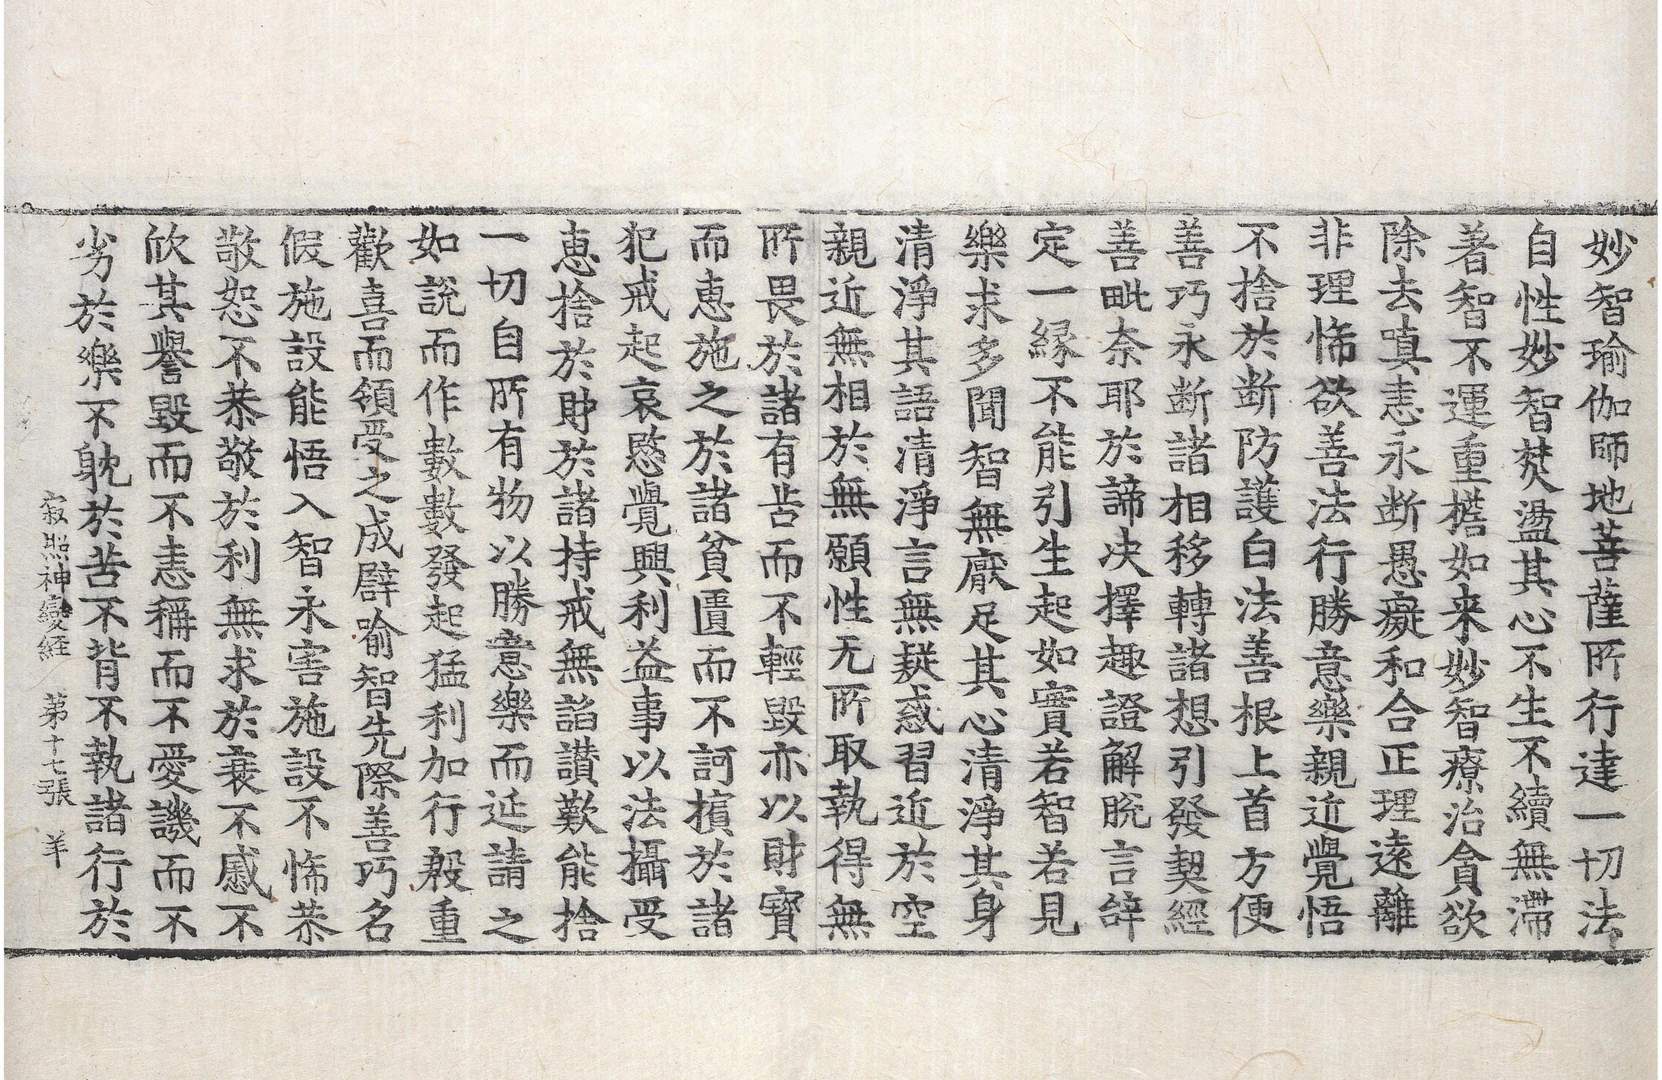 妙智瑜伽師地菩薩所行達一切法
自性妙智焚盪其心不生不續無滯
著智不運重檐如来妙智療治貪欲
除去嗔恚永断愚癡和合正理遠離
非理悕欲善法行勝意樂親近覺悟
不捨於断防護白法善根上首方便
善巧永断諸相移轉諸想引發契經
善毗奈耶於諦决擇趣證解脫言辝
定一緣不能引生起如實若智若見
樂求多聞智無厭足其心清淨其身
清淨其語清淨言無疑惑習近於空
親近無相於無願性无所取執得無
所畏於諸有苦而不輕毀亦以財寶
而恵施之於諸貧匱而不訶擯於諸
犯戒起哀愍覺興利益事以法攝受
恵捨於財於諸持戒無諂讃歎能捨
一切自所有物以勝意樂而延請之
如說而作數數發起猛利加行殷重
歡喜而領受之成辟喻智先際善巧名
假施設能悟入智永害施設不悕恭
敬恕不恭敬於利無求於衰不慼不
欣其譽毀而不恚稱而不愛譏而不
劣於樂不躭於苦不背不執諸行於
寂照神變経 第十七張 羊